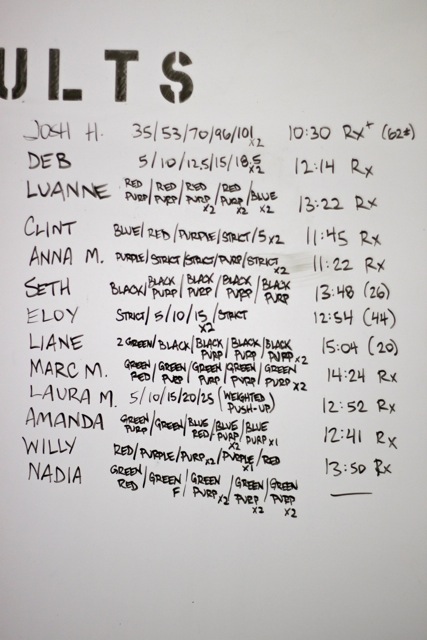 ULTS
JOSH H. 35/53/70/96/101 x2 10:30 Rx+ (62#)
DEB 5/10/12.5/15/18.5 x2 12:14 Rx
LUANNE RED PURP/RED PURP/RED PURP x2/RED PURP x2/BLUE x2 13:22 Rx
CLINT BLUE/RED/PURPLE/STRICT/5 x2 11:45 Rx
ANNA M. PURPLE/STRICT/STRICT/PURP/STRICT x2 11:22 Rx
SETH BLACK/BLACK PURP/BLACK PURP/BLACK PURP/BLACK PURP 13:48 (26)
ELOY STRICT/5/10/15 x2/STRICT 12:54 (44)
LIANE 2 GREEN/BLACK/BLACK PURP/BLACK PURP/BLACK PURP x2 15:04 (20)
MARC M. GREEN RED/GREEN PURP/GREEN PURP/GREEN PURP/GREEN PURP x2 14:24 Rx
LAURA M. 5/10/15/20/25 (WEIGHTED PUSH-UP) 12:52 Rx
AMANDA GREEN PURP/GREEN/BLUE RED/BLUE PURP x2/BLUE PURP x1 12:41 Rx
WILLY RED/PURPLE/PURP x2/PURPLE x1/RED 13:50 Rx
NADIA GREEN RED/GREEN F/GREEN PURP x2/GREEN PURP x2/GREEN PURP x2 —